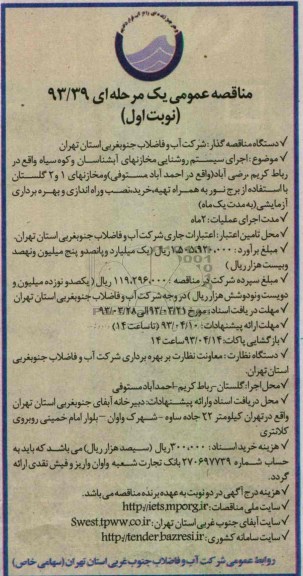 مناقصه عمومی یک مرحله ای ۹۳/۳۹
(نوبت اول)
✓ دستگاه مناقصه گذار: شرکت آب و فاضلاب جنوبغربی استان تهران
✓ موضوع: اجرای سیستم روشنایی مخازنهای آبشناسان وکوه سیاه واقع در
رباط کریم ،رضی آباد(واقع در احمد آباد مستوفی)ومخازنهای ۱ و۲ گلستان
با استفاده از برج نور به همراه تهیه،خرید،نصب وراه اندازی و بهره برداری
آزمایشی(به مدت یک ماه)
✓ مدت اجرای عملیات: ۲ماه
✓ محل تامین اعتبار: اعتبارات جاری شرکت آب و فاضلاب جنوبغربی استان تهران.
✓ مبلغ برآورد: ۱.۵۰۵.۹۲۰.۰۰۰ریال(یک میلیارد و پانصدو پنج میلیون ونهصد
وبیست هزار ریال)
✓ مبلغ سپرده شرکت در مناقصه: ۱۱۹.۲۹۶.۰۰۰ ریال (یکصدو نوزده میلیون و
دویست ونودوشش هزار ریال )در وجه شرکت آب و فاضلاب جنوبغربی استان تهران
✓ مهلت دریافت اسناد: مورخ ۹۳/۰۳/۲۱الی ۹۳/۰۳/۲۸
✓ مهلت ارائه پیشنهادات: ۹۳/۰۴/۱۰ (تاساعت ۱۴)
✓ بازگشایی پاکات: ۹۳/۰۴/۱۴ساعت ۱۴
✓ دستگاه نظارت: معاونت نظارت بر بهره برداری شرکت آب و فاضلاب جنوبغربی
استان تهران.
✓ محل اجرا: گلستان-رباط کریم-احمدآبادمستوفی
✓ محل دریافت اسناد وارائه پیشنهادات: دبیرخانه آبفای جنوبغربی استان تهران
واقع در تهران کیلومتر ۲۲ جاده ساوه – شهرک واوان – بلوار امام خمینی روبروی
کلانتری
✓ هزینه خرید اسناد: ۳۰۰.۰۰۰ریال (سیصدهزار ریال) می باشد که باید به
حساب شماره ۲۷۰۶۹۷۷۳۹ بانک تجارت شعبه واوان واریز و فیش نقدی ارائه
گردد.
✓ هزینه درج آگهی در دو نوبت به عهده برنده مناقصه می باشد.
✓ سایت ملی مناقصات: http://iets.mporg.ir
✓ سایت آبفای جنوب غربی استان تهران: Swest.tpww.co.ir
✓ سایت سامانه کشوری: http://tender.bazresi.ir
روابط عمومی شرکت آب و فاضلاب جنوب غربی استان تهران(سهامی خاص)